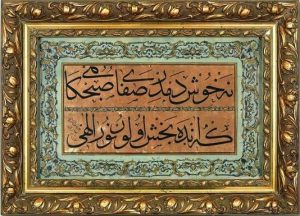 نه خوش دمدر صفای صبحگاهی
که آنده بخش اولور نور الهی